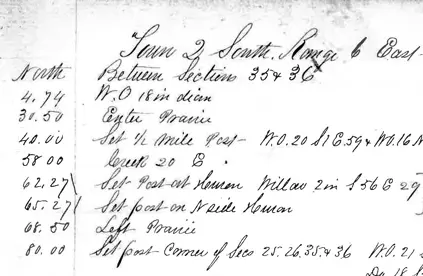 Town 2 South. Range 6 East
North Between Section 35 & 36
4.74 W.O 18 in diam
30.50 Enter Prairie
40.00 Set 1/2 Mile Post - W.O. 20 S1E.59 & W.O.16 N
58 00 Creek 20 E
62.27 Set Post at Heuron Willow 2 in S 56 E 29
65.27 Set post on N side Heuron
68.50 Left Prairie
80.00 Set post Corner of Secs 25.26.35 & 36 W.O. 21
Do 18